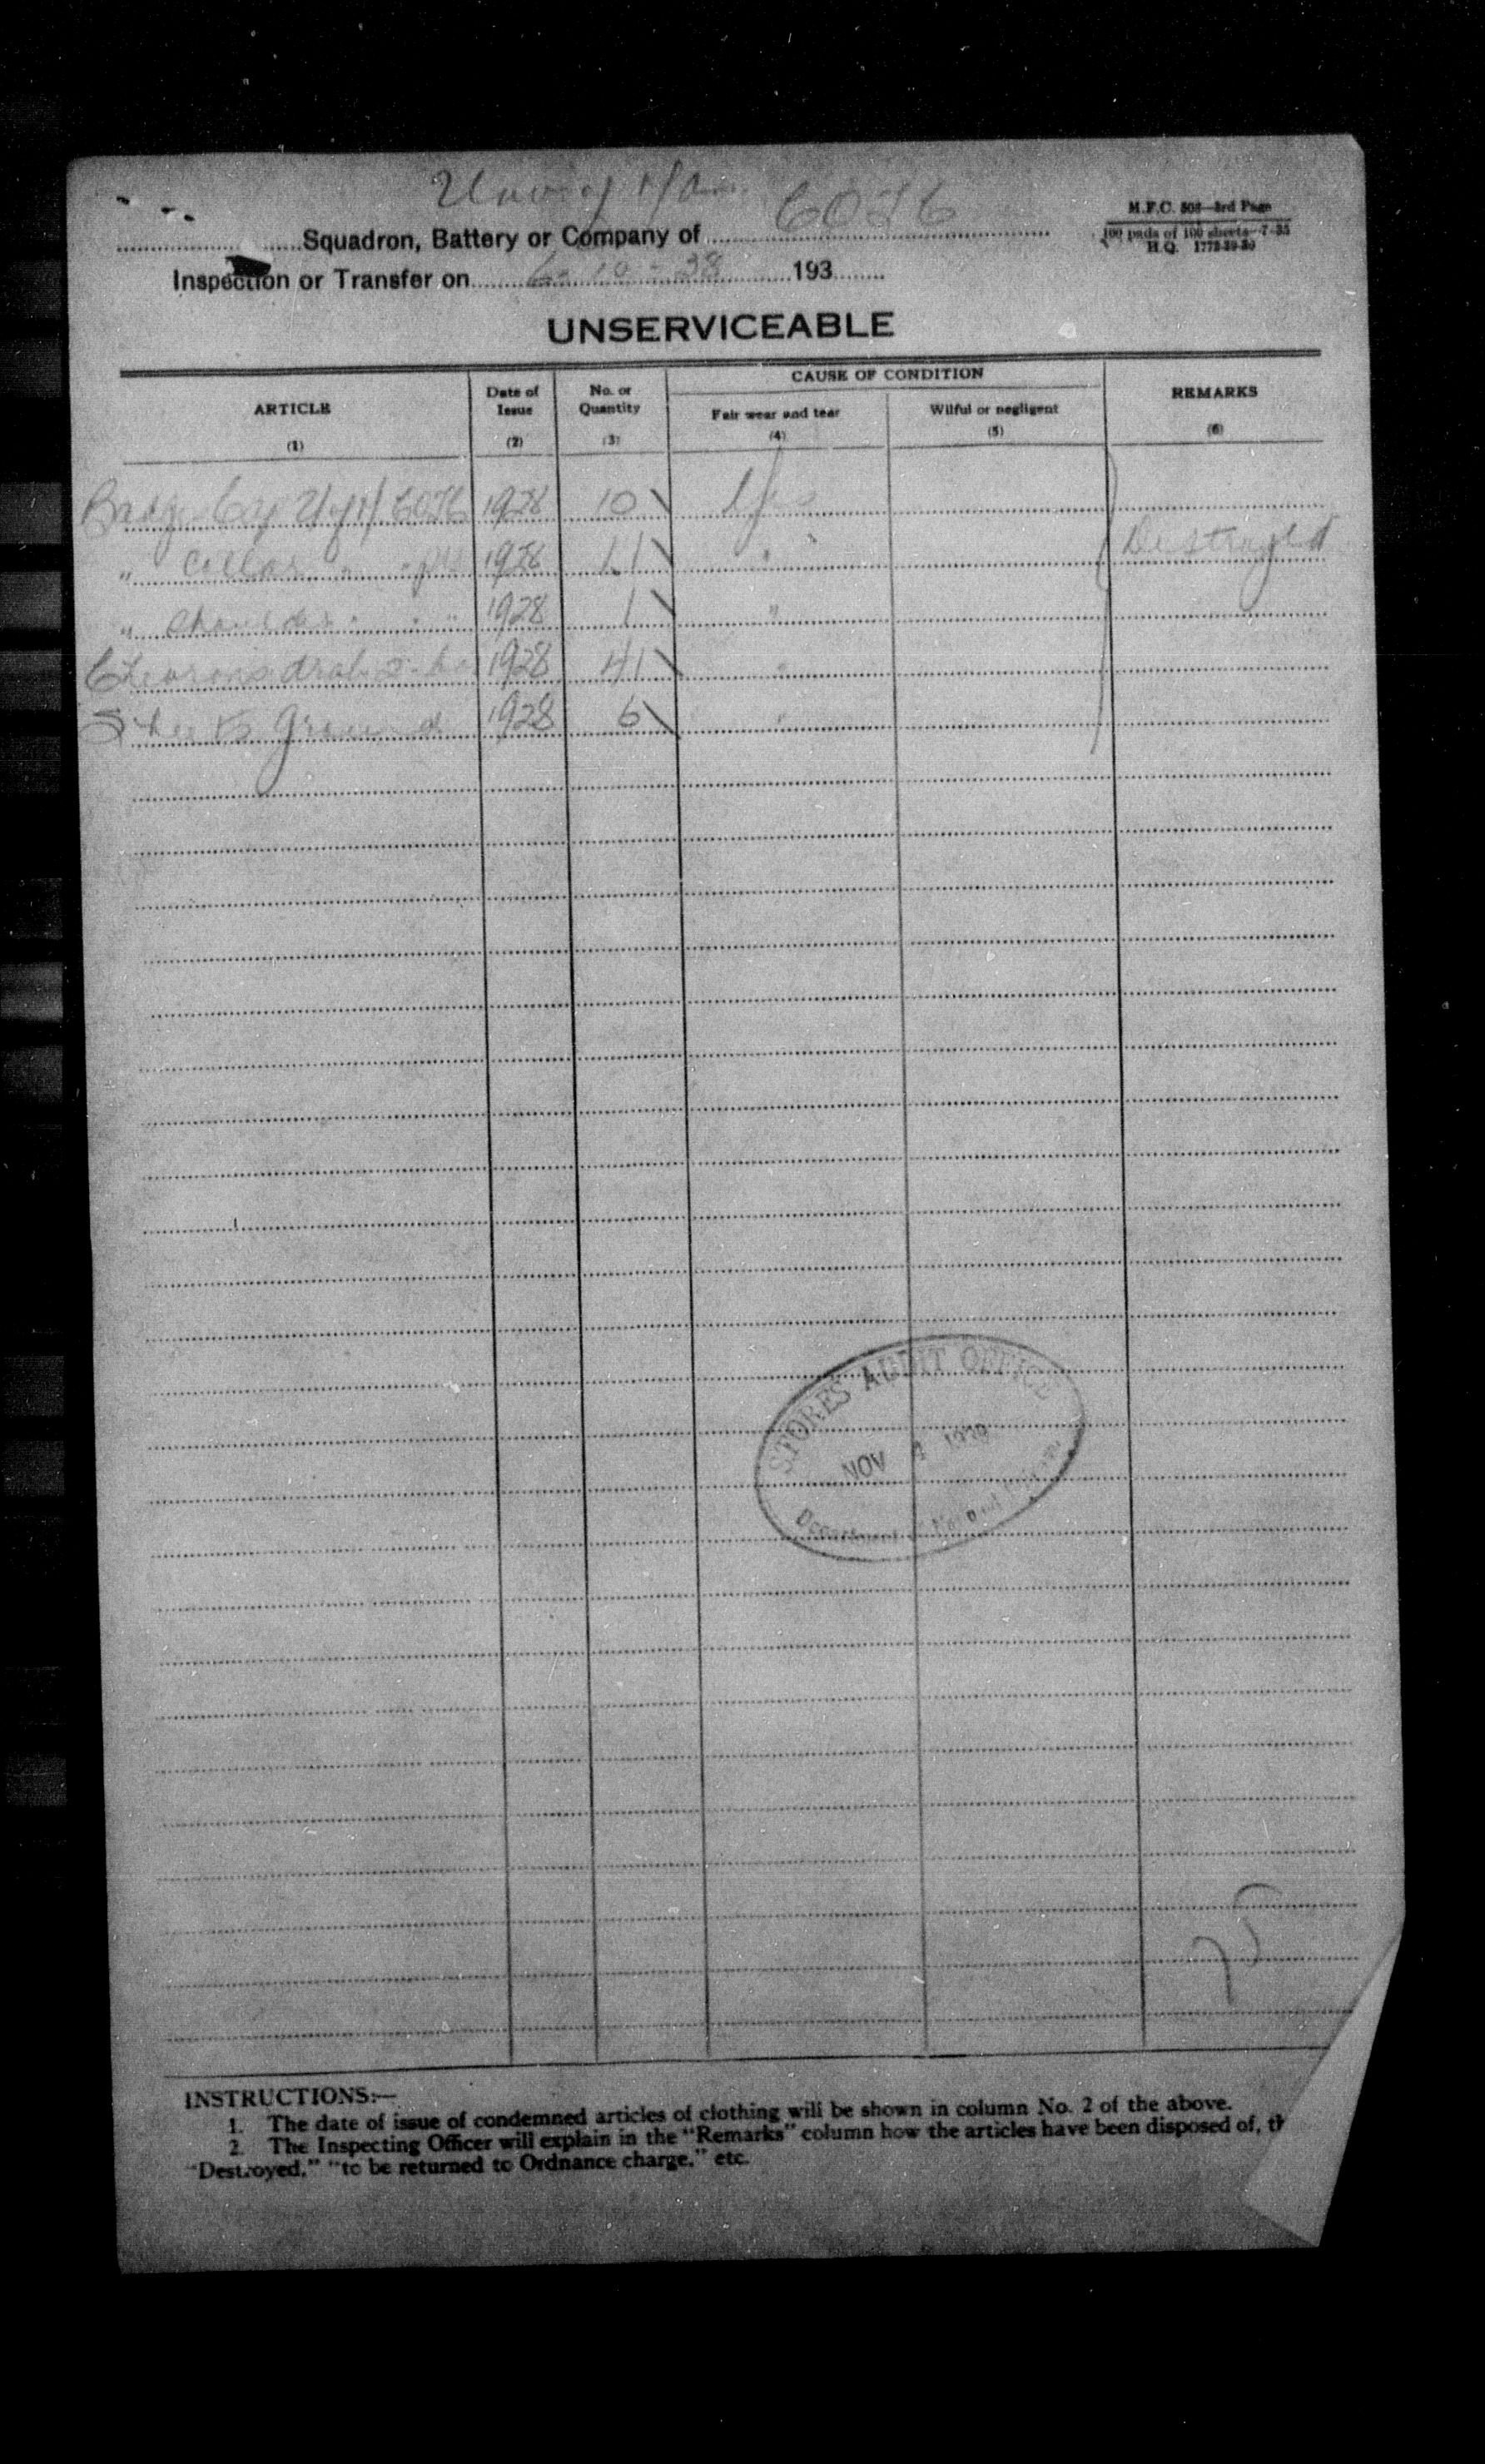 Univ of Man. COTC
M.F.C. 808—3rd Page
Squadron, Battery or Company of
100 pads of 100 sheets—7-35
H.Q. 1772-39-30
Inspection or Transfer on 6-10-38 193
UNSERVICEABLE
ARTICLE Date of Issue No. or Quantity CAUSE OF CONDITION REMARKS
Fair wear and tear Wilful or negligent
(1) (2) (3) (4) (5) (6)
Badge Cap U of M COTC 1928 10 Yes
" Collar " " 1928 11 " " Destroyed
" Shoulder " " " 1928 1 "
Chevrons drab 2- 1928 41 "
Sheets Ground 1928 6 "
STORES AUDIT OFFICE
NOV
Department of National
INSTRUCTIONS:—
1. The date of issue of condemned articles of clothing will be shown in column No. 2 of the above.
2. The Inspecting Officer will explain in the "Remarks" column how the articles have been disposed of,
"Destroyed," "to be returned to Ordnance charge," etc.